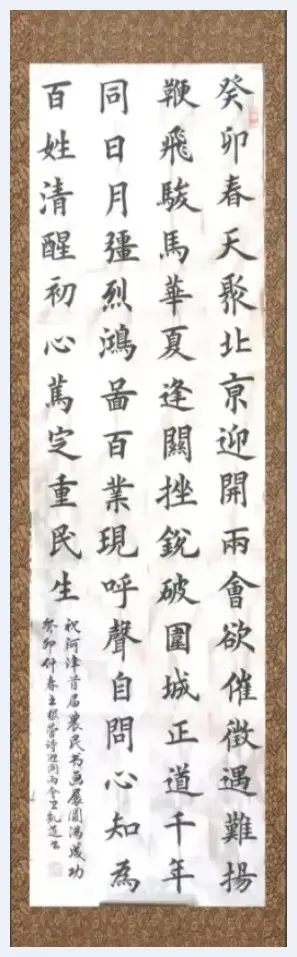 癸卯春天聚北京迎開兩會欲催徵遇難揚
鞭飛駿馬華夏逢關挫銳破圍城正道千年
同日月彊烈鴻啚百業現呼聲自問心知為
百姓清醒初心篤定重民生
祝河津首届農民书画展圓满成功
癸卯仲春王根管诗迎兩会王乾道书